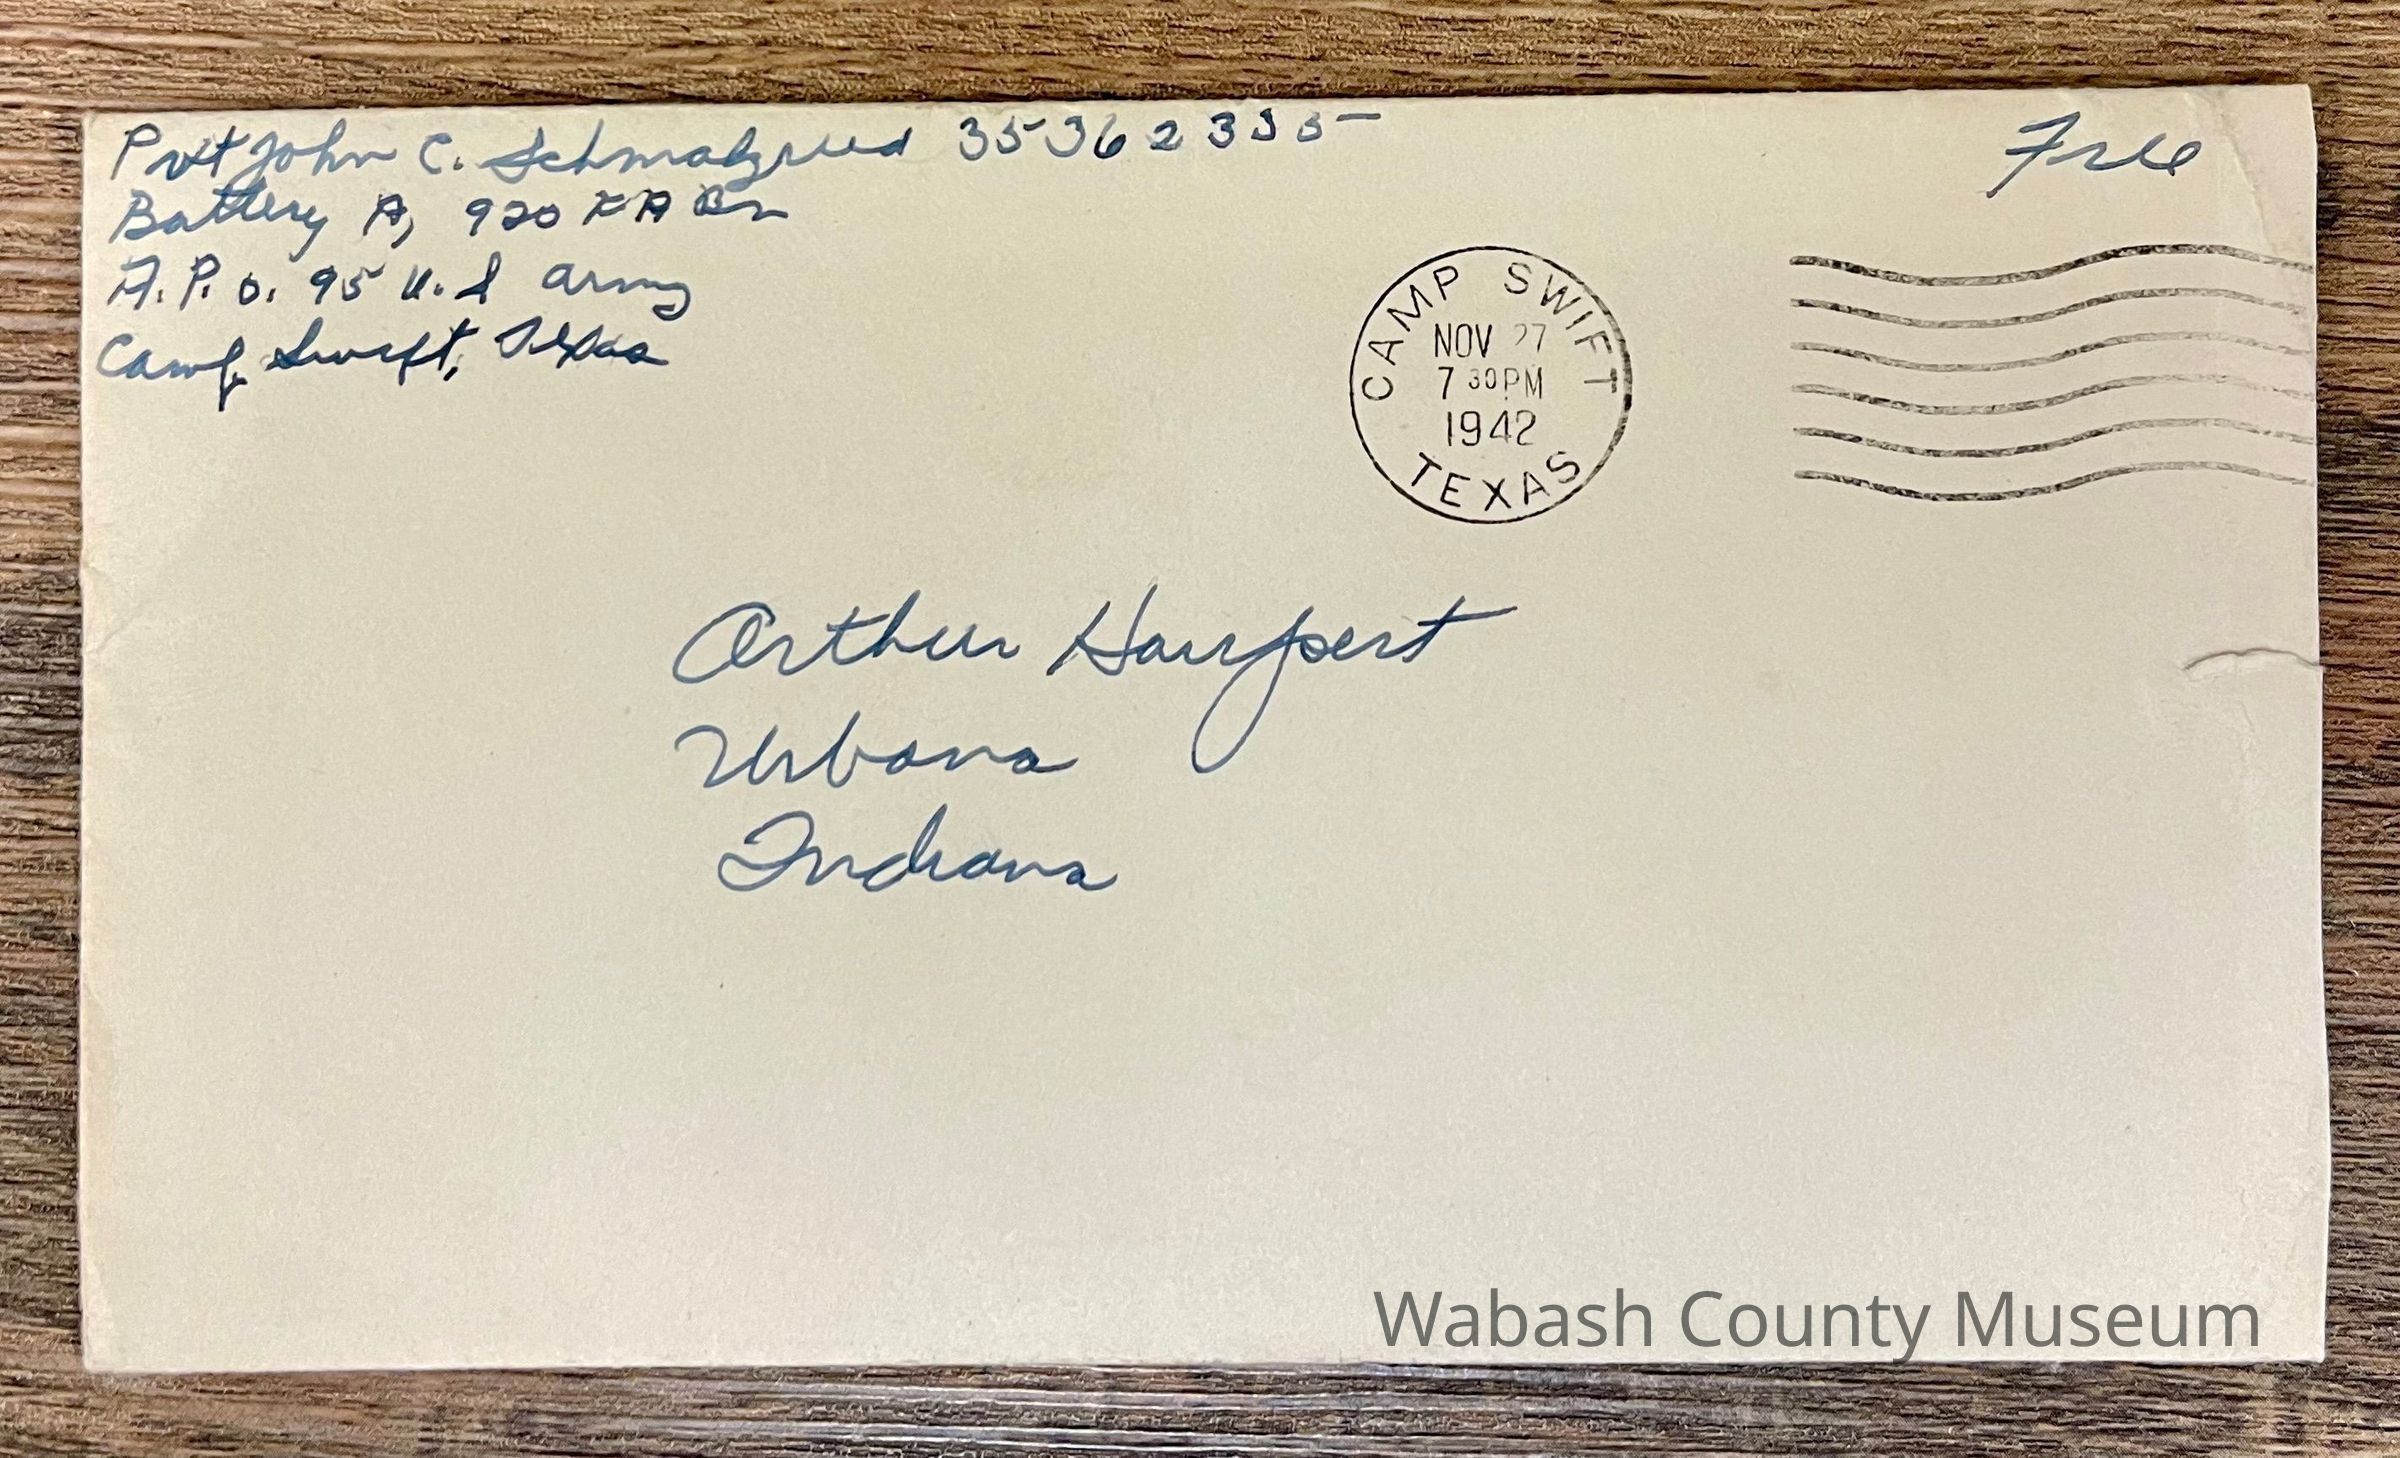 Pvt John C. Schmalzried 35362335
Battery A, 920 FA Bn
A.P.O. 95 U.S Army
Camp Swift, Texas
Free
CAMP SWIFT
NOV 27
7 30PM
1942
TEXAS
Arthur Haupert
Urbana
Indiana
Wabash County Museum